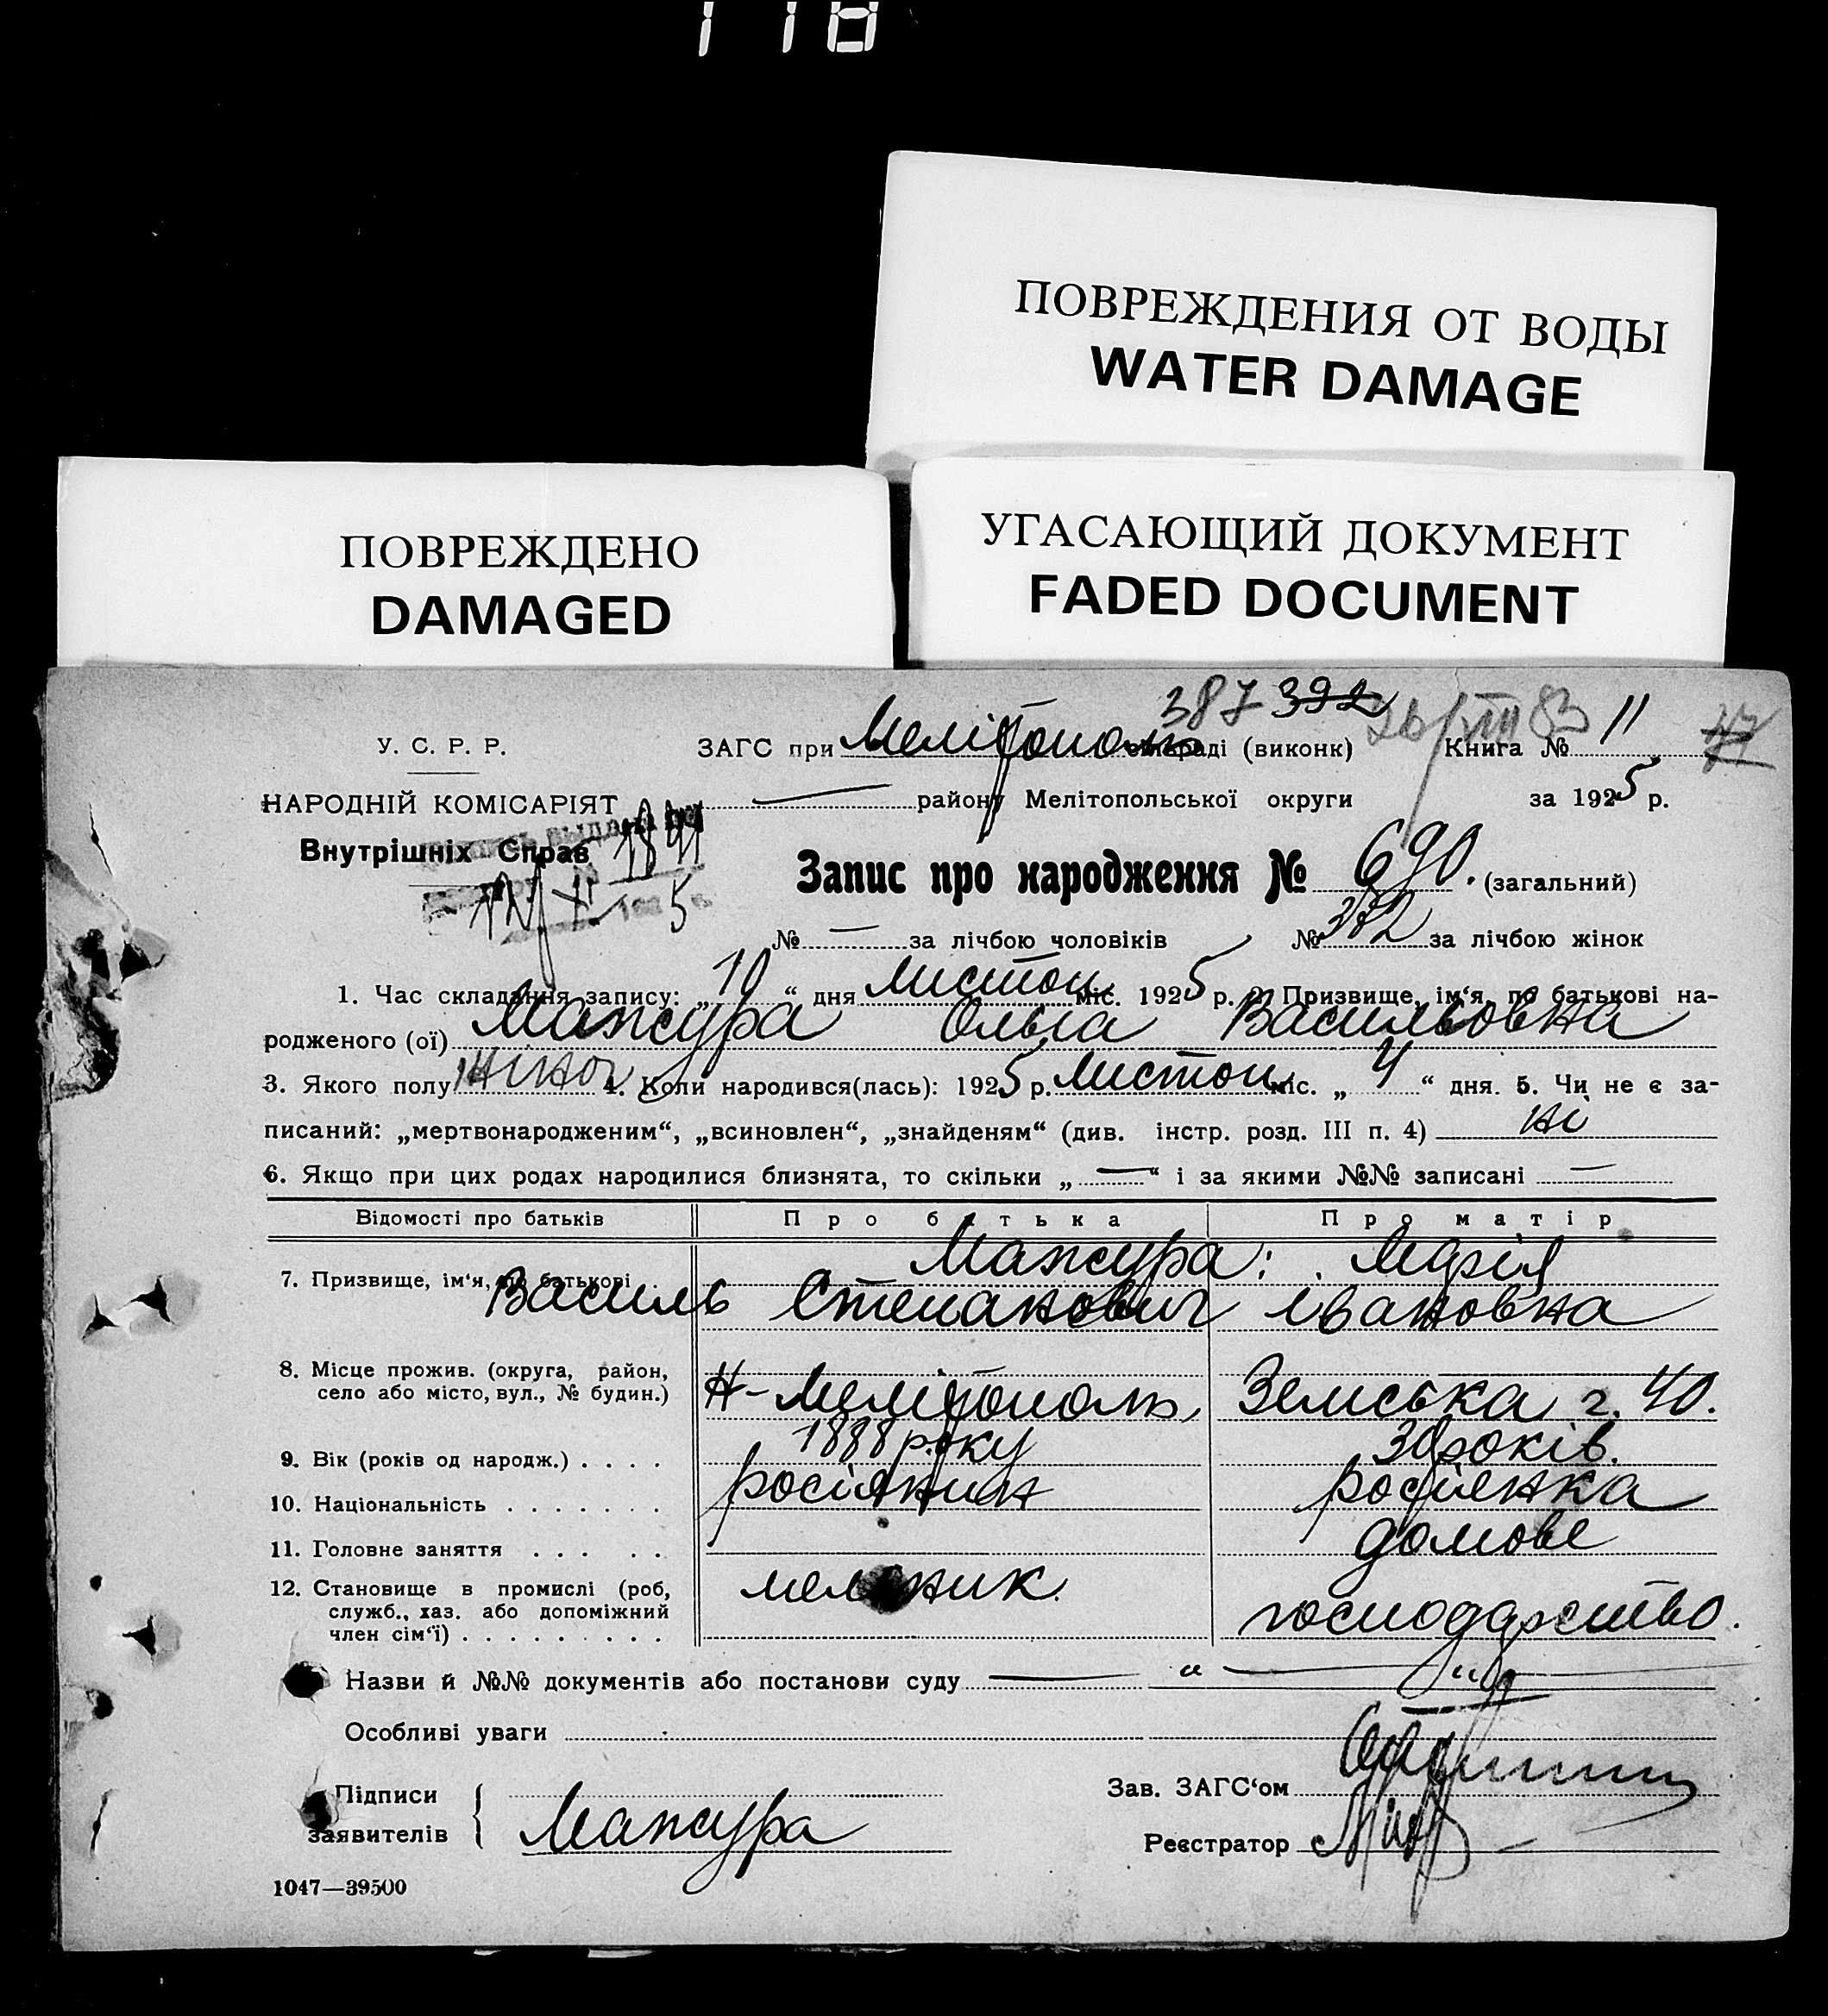 118
ПОВРЕЖДЕНИЯ ОТ ВОДЫ
WATER DAMAGE
ПОВРЕЖДЕНО
DAMAGED
УГАСАЮЩИЙ ДОКУМЕНТ
FADED DOCUMENT
387 392 11
У. С. Р. Р. ЗАГС при Мелітополь раді (виконк) Книга № 11
НАРОДНІЙ КОМІСАРІЯТ — району Мелітопольської округи за 1925 р.
Внутрішніх Справ
Запис про народження № 690. (загальний)
№ — за лічбою чоловіків № 382 за лічбою жінок
1. Час складання запису: „10“ дня Листоп міс. 1925 р. 2. Призвище, ім‘я, по батькові на-
родженого (ої) Мажура Ольга Васильовна
3. Якого полу жіноч 4. Коли народився(лась): 1925 р. Листоп міс. „4“ дня. 5. Чи не є за-
писаний: „мертвонародженим“, „всиновлен“, „знайденям“ (див. інстр. розд. III п. 4) ні
6. Якщо при цих родах народилися близнята, то скільки „—“ і за якими №№ записані —
Відомості про батьків Про батька Про матір
7. Призвище, ім‘я, по батькові Мажура: Марія
Василь Степанович Івановна
8. Місце прожив. (округа, район,
село або місто, вул., № будин.) Н-Мелітополь, Земська г. 40.
9. Вік (років од народж.) . . . . 1888 року 30 років.
10. Національність . . . . . . . росіянин росіянка
11. Головне заняття . . . . . домове
12. Становище в промислі (роб, мельник.
служб., хаз. або допоміжний господарство.
член сім‘ї) . . . . . . . . .
Назви й №№ документів або постанови суду — „ —
Особливі уваги
Підписи
заявителів Мажура
Зав. ЗАГС‘ом
Реєстратор
1047—39500